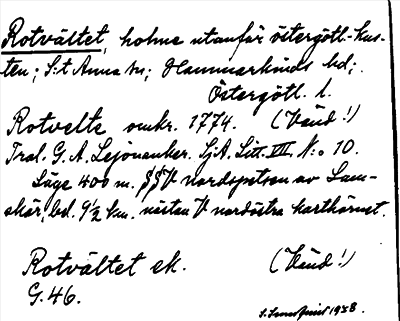 Rotvältet, holme utanför östergötl.-kus-
ten; S:t Anna sn; Hammarkinds hd;
Östergötl. l.
Rotvelte omkr. 1774. (Vänd!)
Trol. G. A. Lejonanker. LjA. Litt. VII N:o 10.
Läge 400 m. SSV nordspetsen av Lam-
skär, bel. 9½ km. nästan V nordöstra karthörnet.
Rotvältet ek. (Vänd!)
G. 46.
1938.